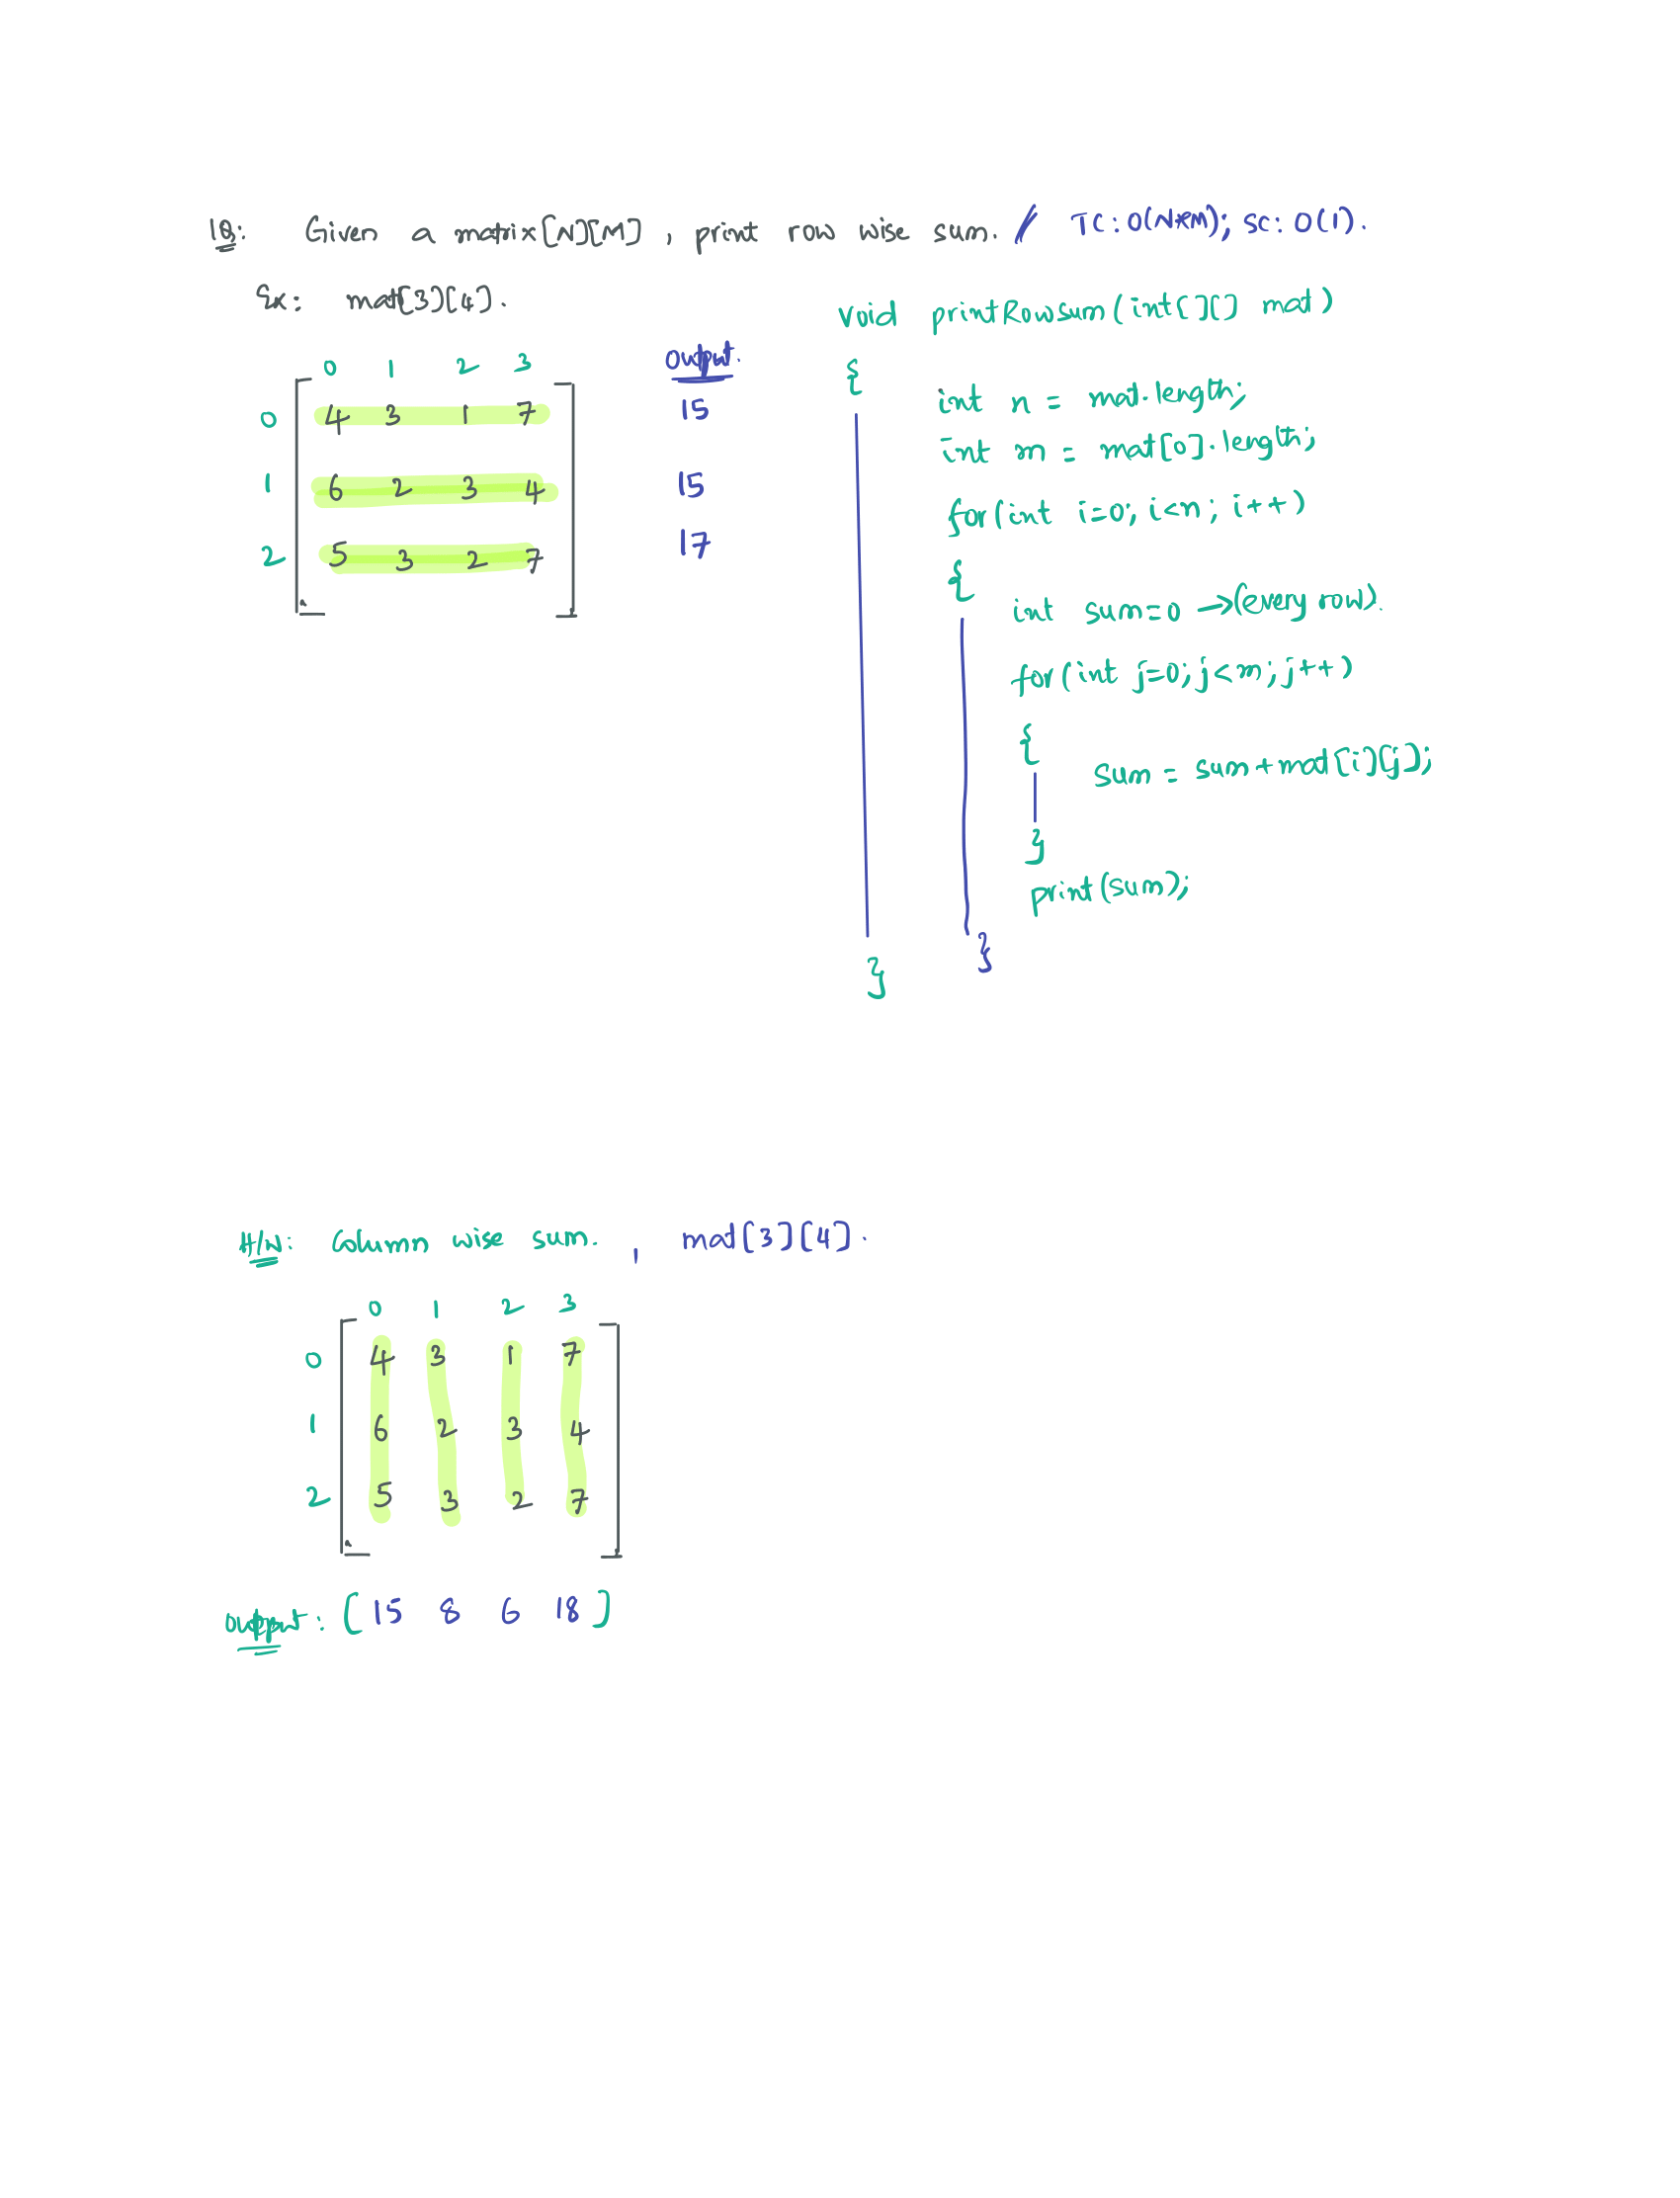 1Q: Given a matrix[N][M], print row wise sum. / TC: O(N*M); SC: O(1).
Ex: mat[3][4].
0 1 2 3
0 4 3 1 7
1 6 2 3 4
2 5 3 2 7
output.
15
15
17
void printRowsum(int[][] mat)
{
int n = mat.length;
int m = mat[0].length;
for(int i=0; i<n; i++)
{
int sum=0 →(every row).
for(int j=0; j<m; j++)
{
sum = sum+mat[i][j];
}
print(sum);
}
}
H/W: Column wise sum. , mat[3][4].
0 1 2 3
0 4 3 1 7
1 6 2 3 4
2 5 3 2 7
output: [15 8 6 18]